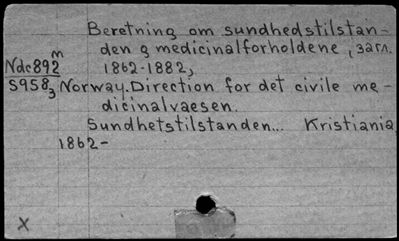 Beretning om sundhedstilstan-
den g medicinalforholdene, 3årn.
Ndc892m 1862-1882,
S9583 Norway. Direction for det civile me-
dicinalvaesen.
Sundhetstilstanden... Kristiania,
1862-
X